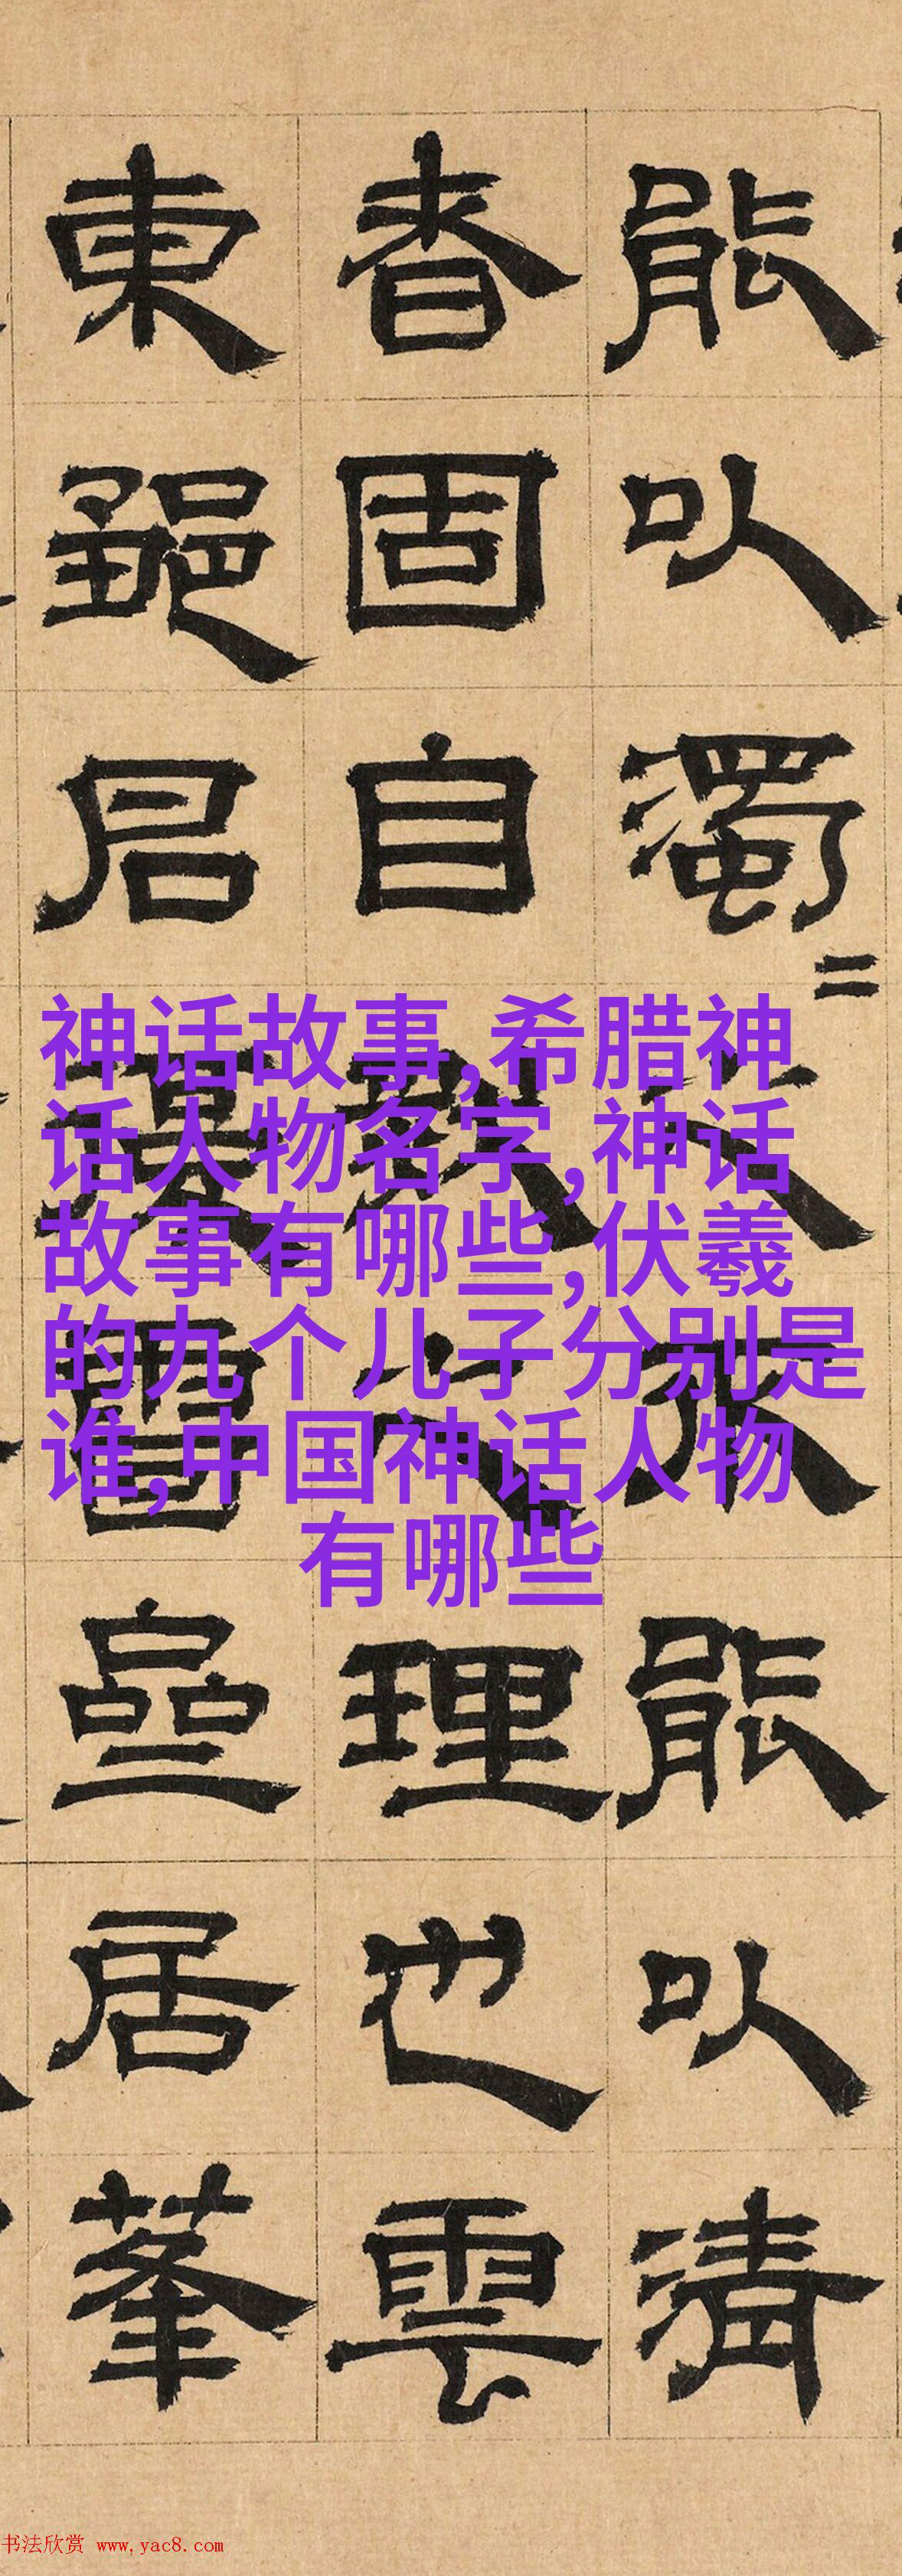 能以濁二
水能以清
者固自
理也雲
東
名
壘居峯
神话故事,希腊神
话人物名字,神话
故事有哪些,伏羲
的九个儿子分别是
谁,中国神话人物
有哪些
书法欣赏 www.yac8.com